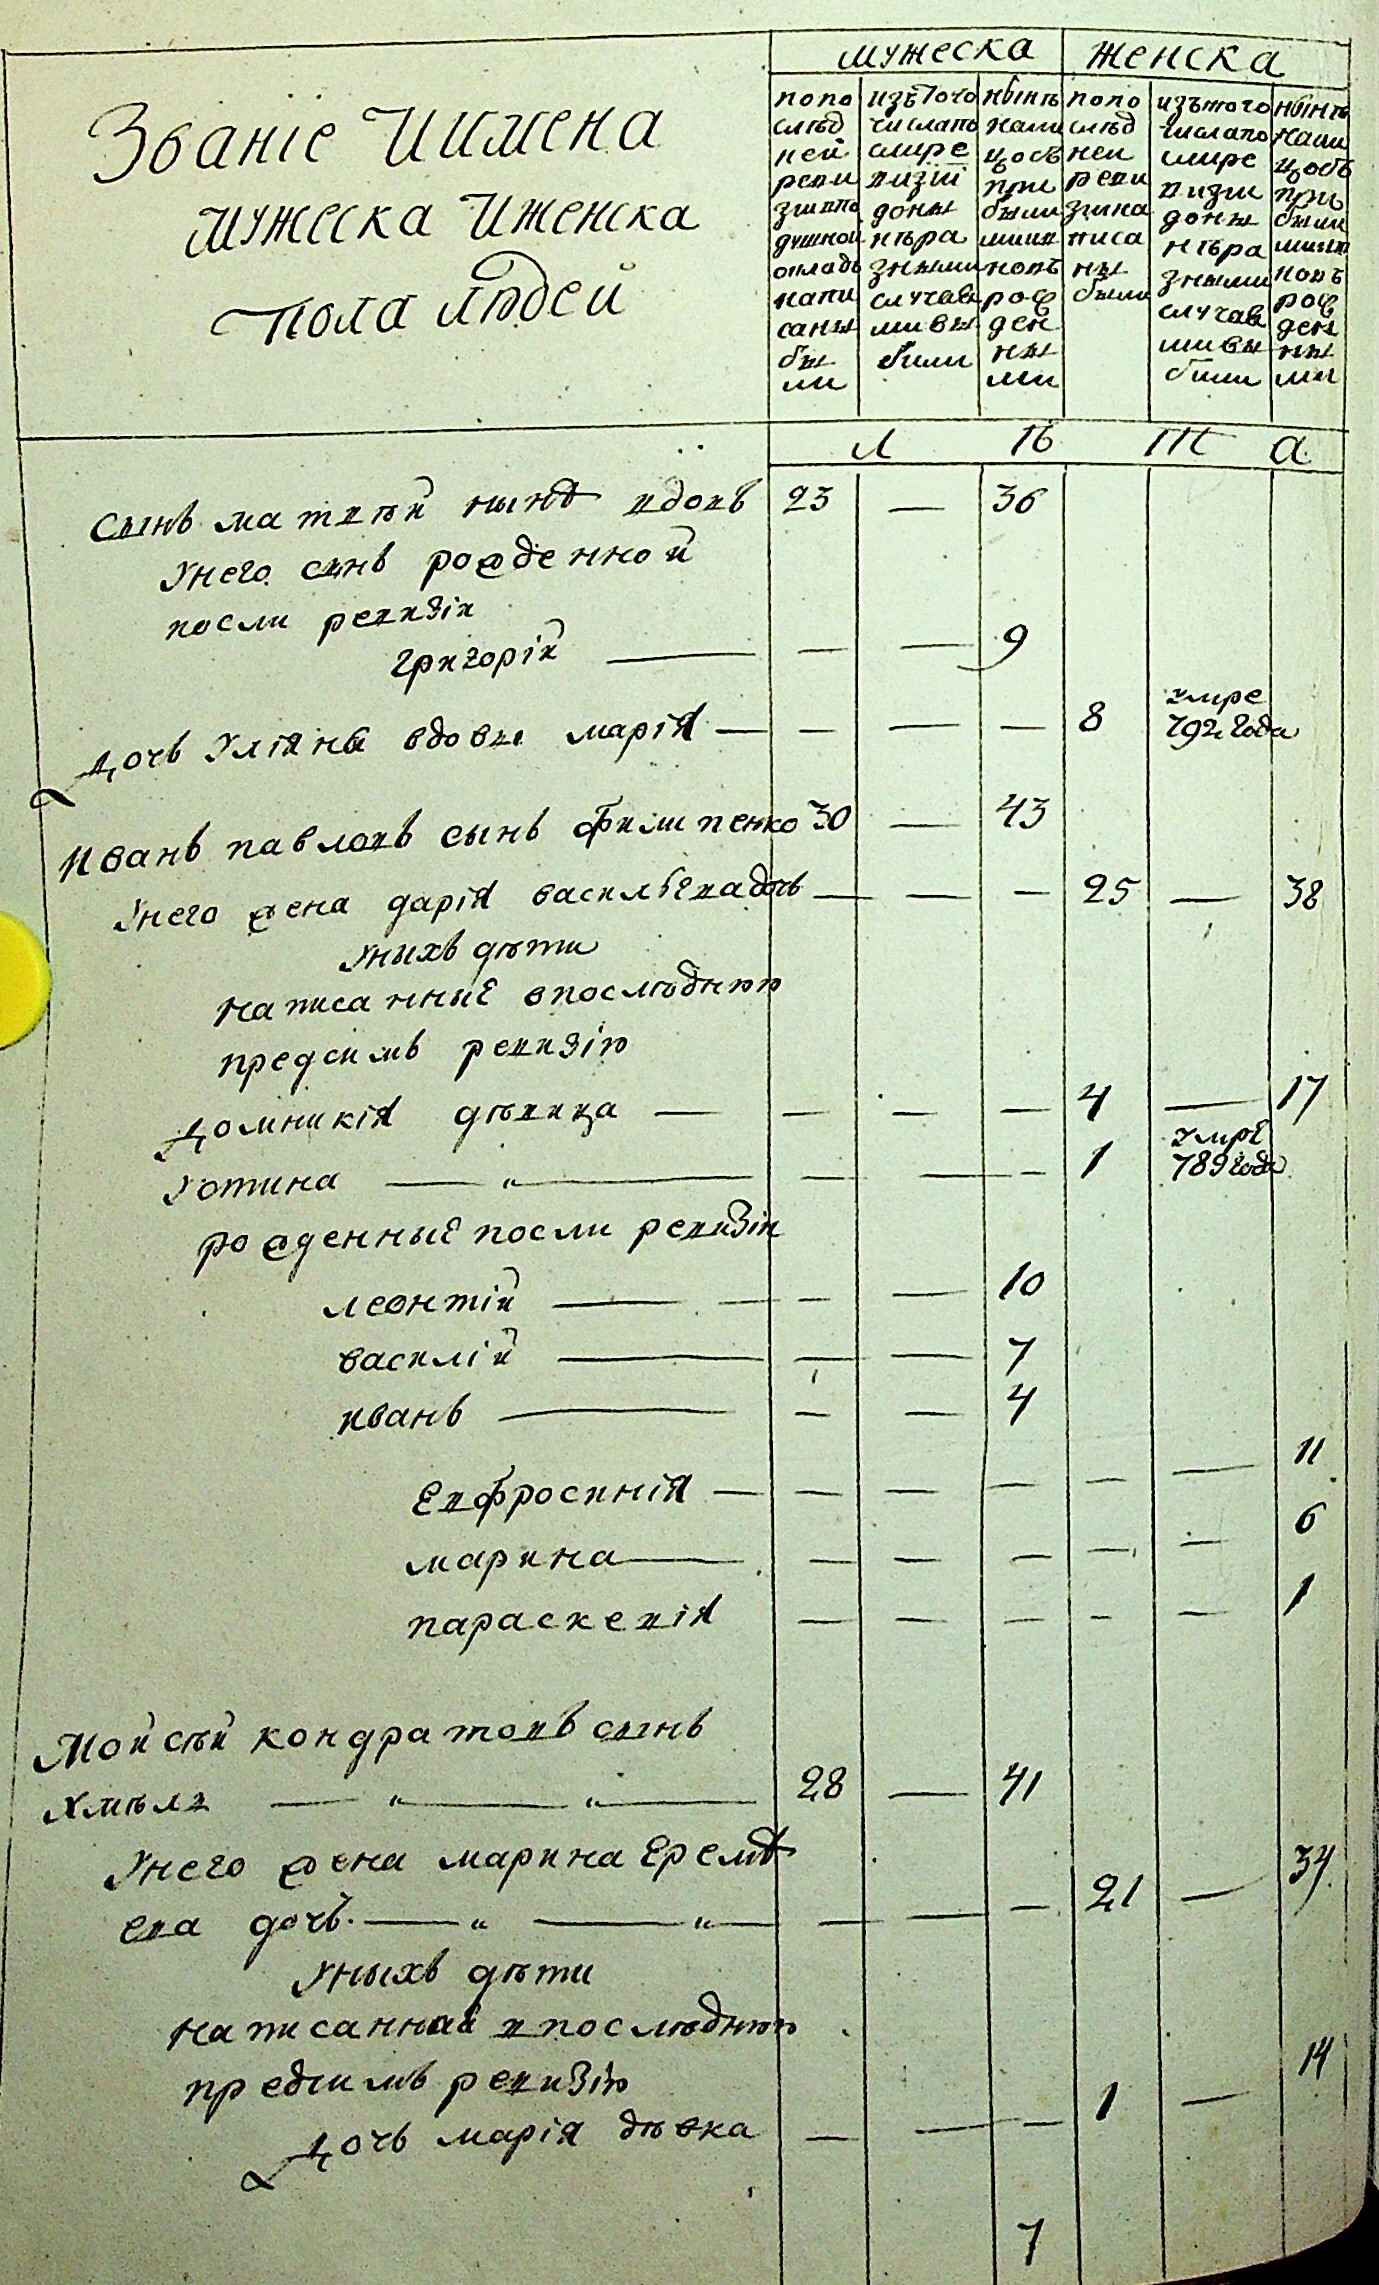 мужеска женска
Званіе Иимена
мужеска Иженска
пола людей
попо слѣд ней реви зіипо душной окладъ напи саны бы ли
изътого числапо слире визіи доны нѣра зными случая миви были
нынѣ нали цосъ при были мыивновъ рожден ны ми
попо слѣд ней реви зіина писа ны были
изътого числапо слире визіи доны нѣра зными случая мивы были
нынѣ нали цосъ при были мыивновъ рожден ны ми
л ѣ т а
Сынъ матвѣй нынѣ вдовъ 23 — 36
Унего сынъ рожденной
посли ревизіи
григорій — — — 9
Дочь Уліяны вдовы марія — — — — 8 умре 792 года
Иванъ павловъ сынъ Филипенко 30 — 43
Унего жена дарія васильевадочь — — — 25 — 38
Уныхъ дѣти
написанные впослѣднюю
предсимъ ревизію
Домникія дѣвица — — — — 4 — 17
Устина — „ — — — — 1 умре 789 года
рожденные посли ревизіи
леонтій — — — — 10
василій — — — 7
иванъ — — — 4
Евфросинія — — — — — — 11
марина — — — — — — 6
параскевія — — — — — 1
Мойсѣй кондратовъ сынъ
Хмѣль — „ — „ — 28 — 41
Унего жена марина Еремѣ
ева дочь. — „ — „ — — — — 21 — 34
Уныхъ дѣти
написанные впослѣднюю
предсимъ ревизію
Дочь марія дѣвка — — — 1 — 14
7